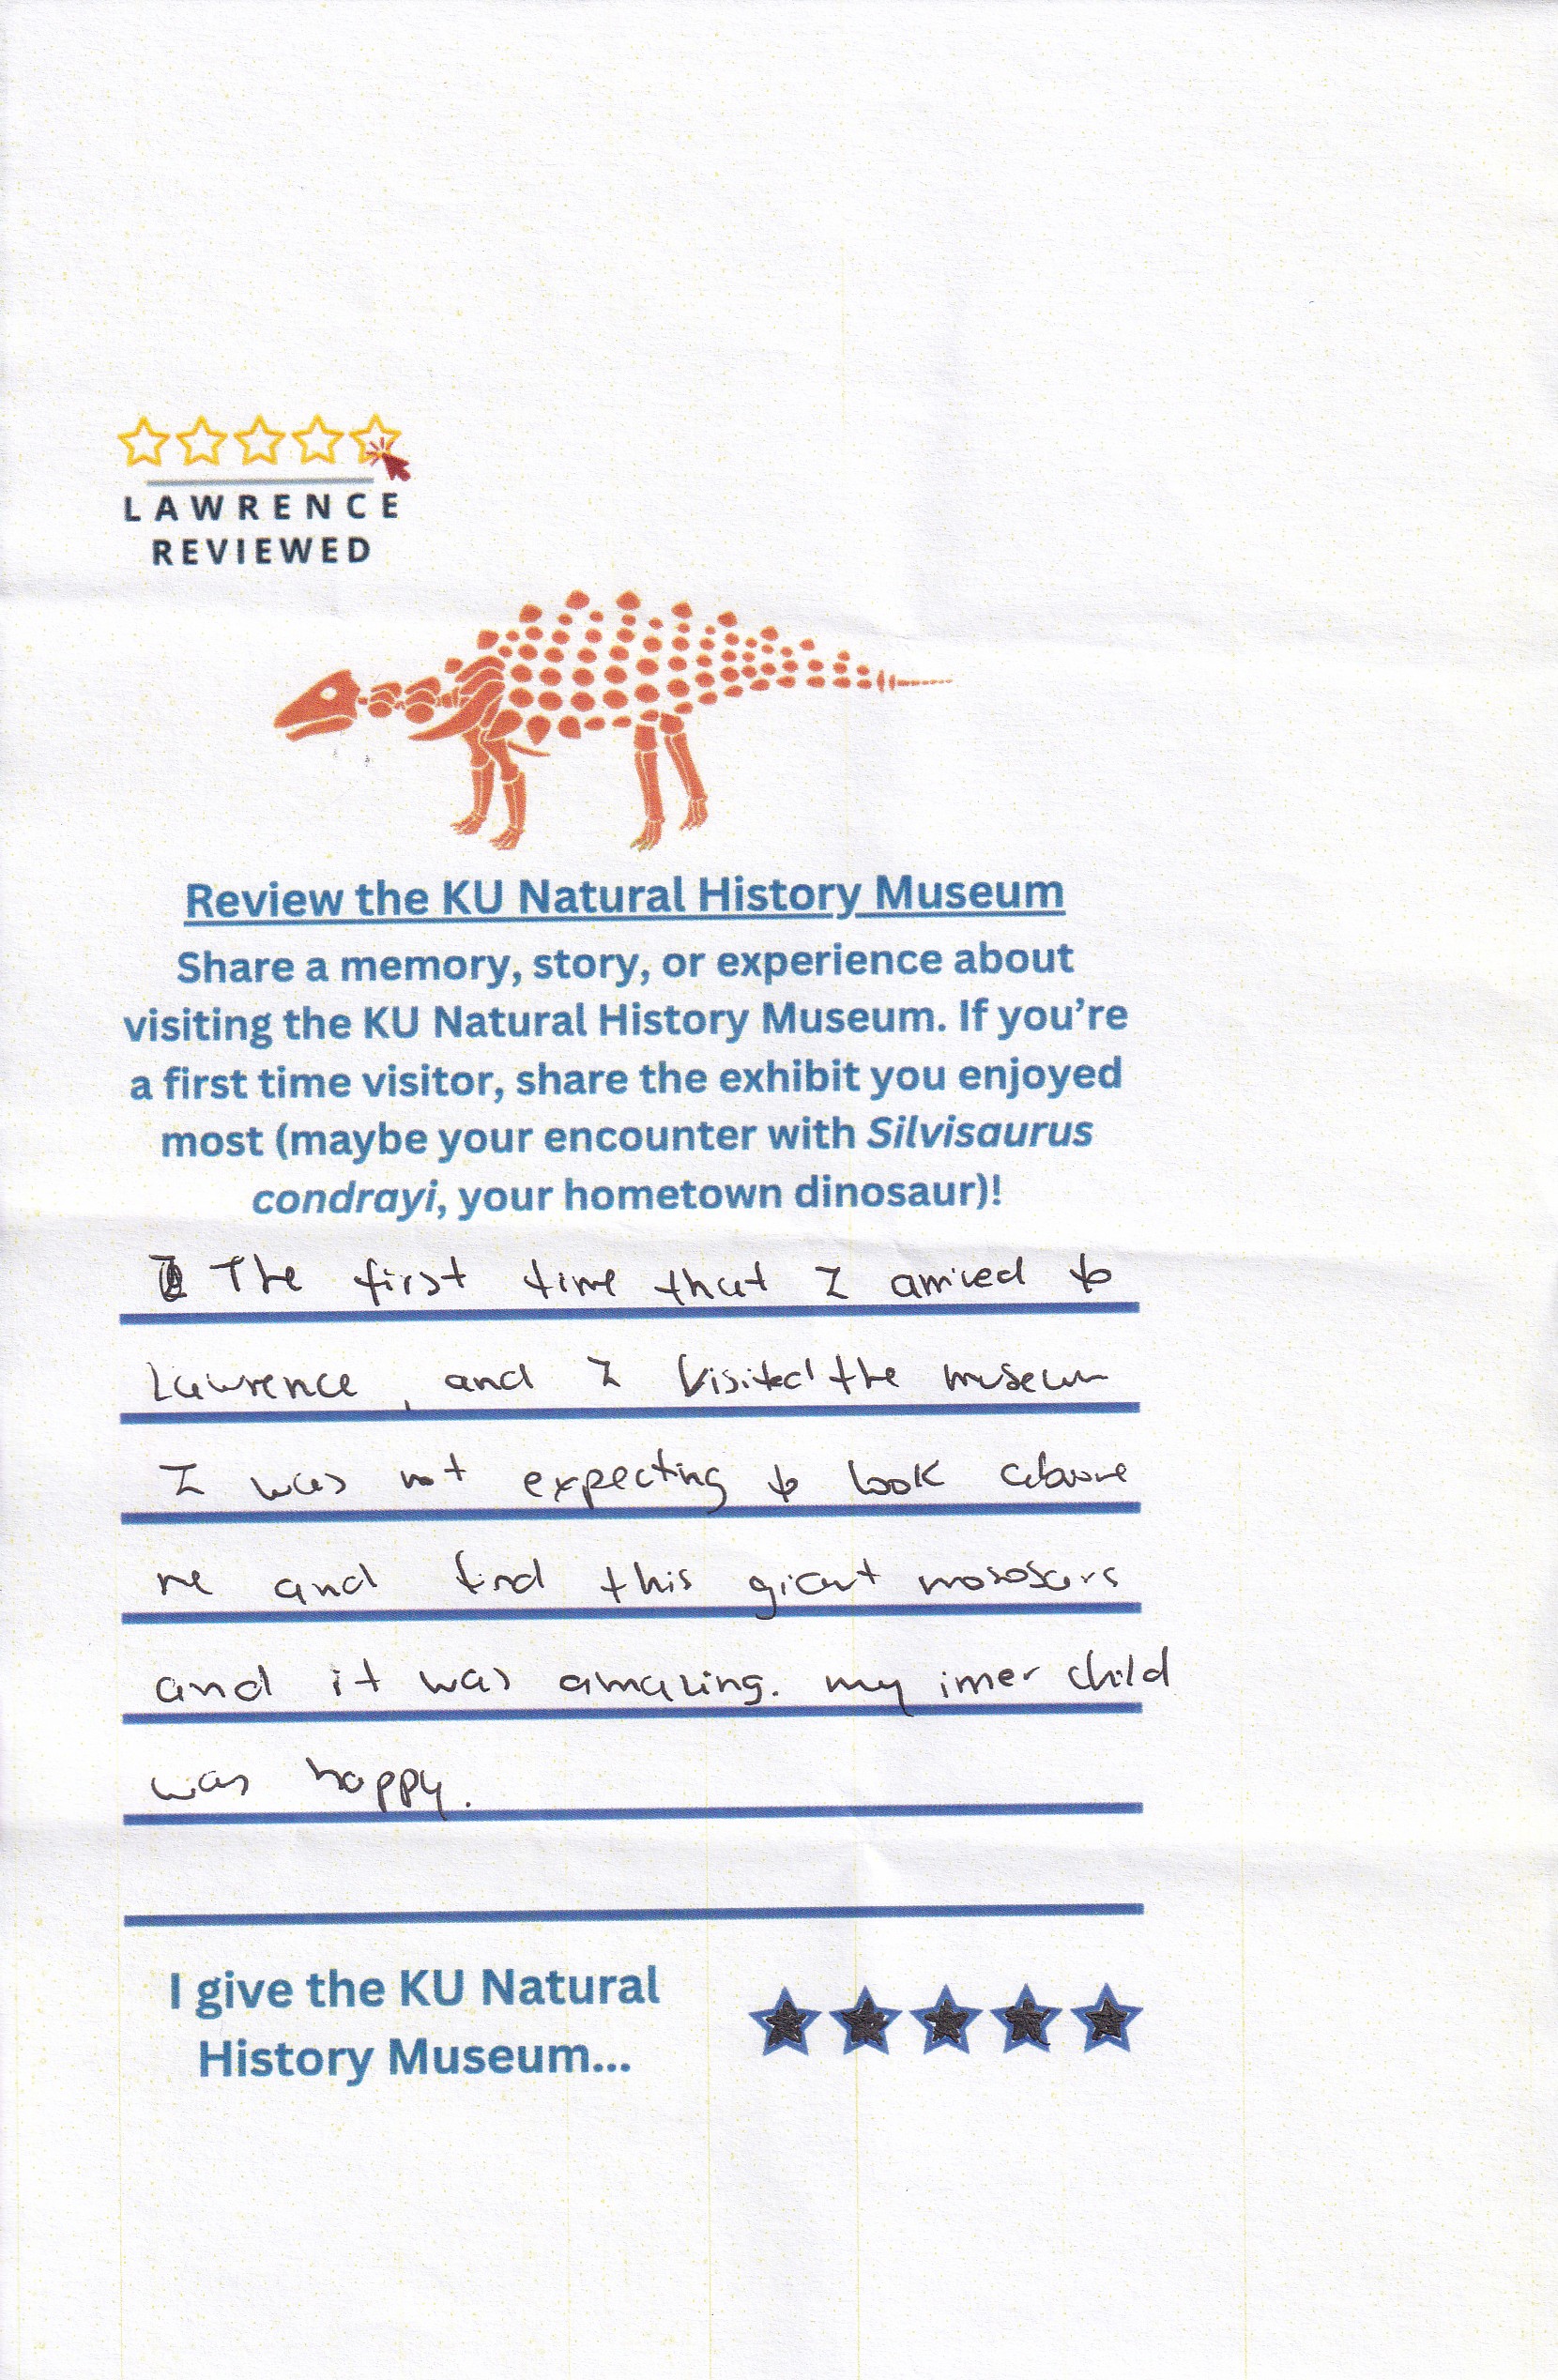 LAWRENCE
REVIEWED
Review the KU Natural History Museum
Share a memory, story, or experience about
visiting the KU Natural History Museum. If you're
a first time visitor, share the exhibit you enjoyed
most (maybe your encounter with Silvisaurus
condrayi, your hometown dinosaur)!
The first time that I arrived to
Lawrence, and I Visited the museum
I was not expecting to look above
me and find this giant mososars
and it was amazing. my inner child
was happy.
I give the KU Natural
History Museum...